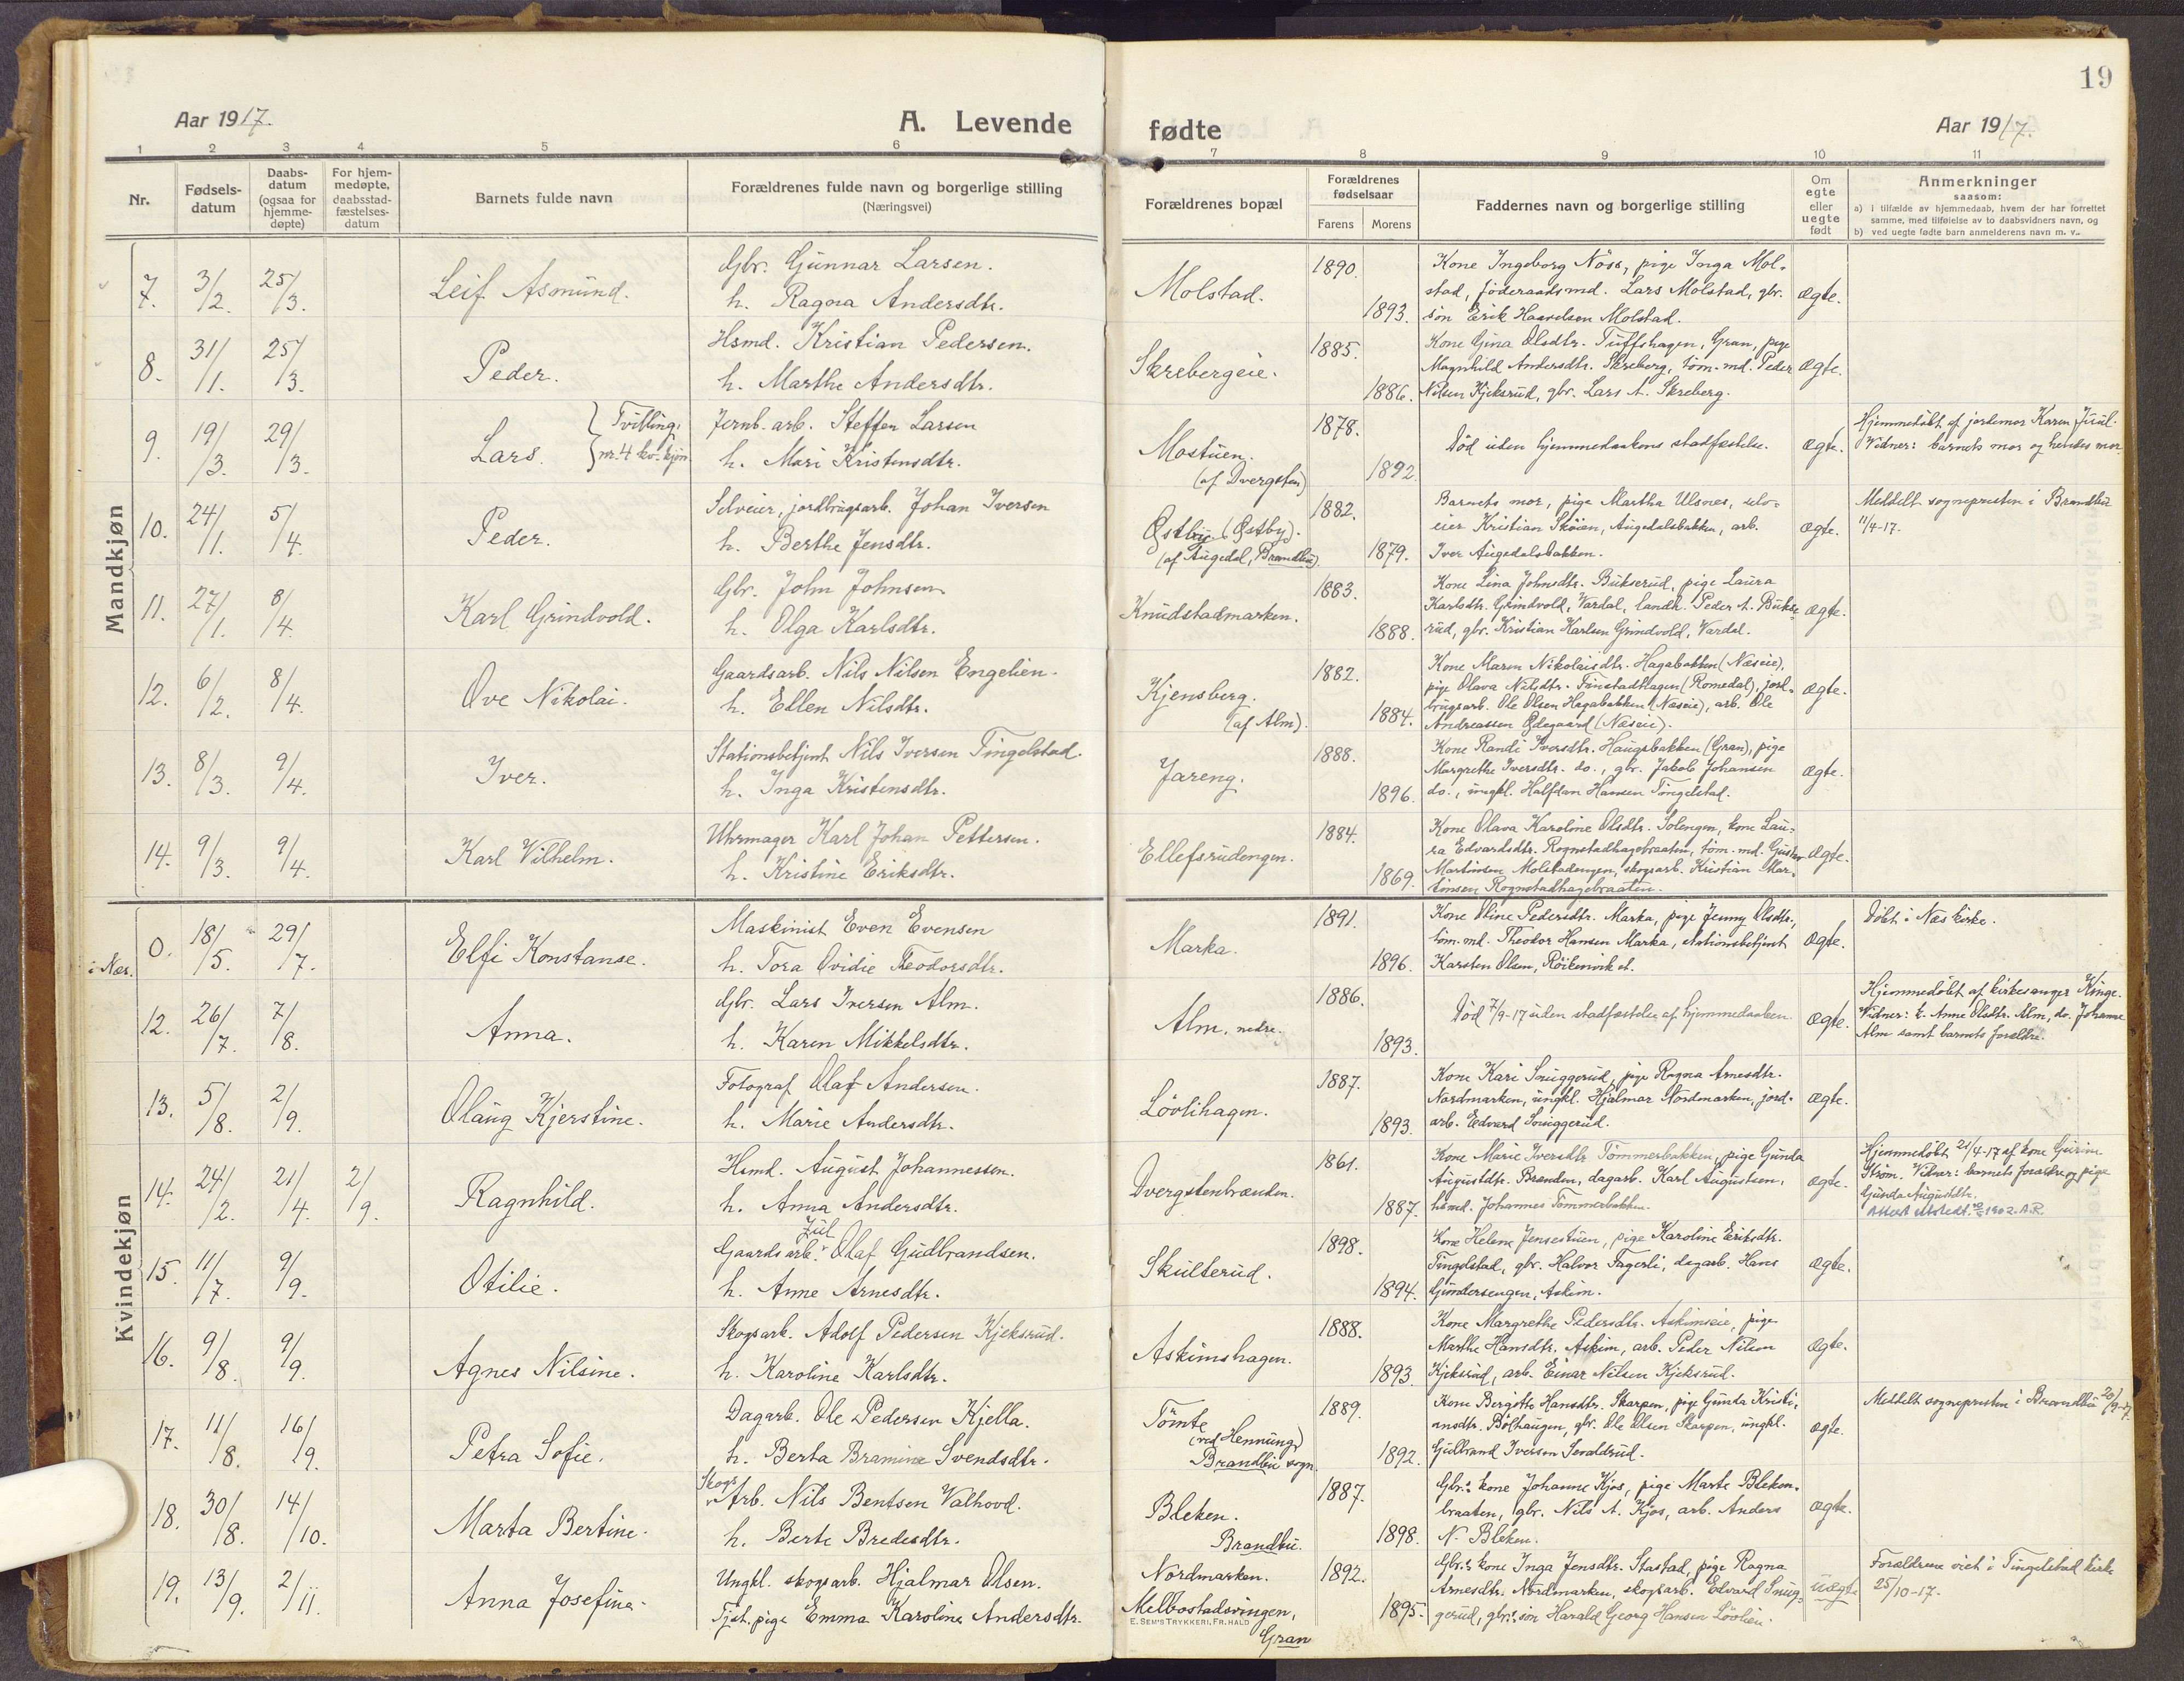 19
Aar 1917.
A. Levende
fødte
Aar 1917.
1 2 3 4 5 6 7 8 9 10 11
Nr.
Fødsels-
datum
Daabs-
datum
(ogsaa for
hjemme-
døpte)
For hjem-
medøpte,
daabsstad-
fæstelses-
datum
Barnets fulde navn
Forældrenes fulde navn og borgerlige stilling
(Næringsvei)
Forældrenes bopæl
Forældrenes
fødselsaar
Farens Morens
Faddernes navn og borgerlige stilling
Om
egte
eller
uegte
født
Anmerkninger
saasom:
a) i tilfælde av hjemmedaab, hvem der har forrettet
samme, med tilføielse av to daabsvidners navn, og
b) ved uegte fødte barn anmelderens navn m. v.
Mandkjøn
7. 3/2. 25/3. Leif Asmund.
Gbr. Gunnar Larsen.
h. Ragna Andersdtr.
Molstad.
1890.
1893.
Kone Ingeborg Nöss, pige Inga Mol-
stad, föderaadsmd. Lars Molstad, gbr.
sön Erik Molstad.
ægte.
8. 31/1. 25/3. Peder.
Hsmd. Kristian Pedersen.
h. Marthe Andersdtr.
Skrebergeie.
1885.
1886.
Kone Gina Olsdtr. Tuffshagen, Gran, pige
Magnhild Andersdtr. Skreberg, töm.md. Peder
Nilsen Kjeksrud, gbr. Lars A. Skreberg.
ægte.
9. 19/3. 29/3. Lars.
Tvilling,
nr. 4 kv.kjøn
Jernb.arb. Steffen Larsen
h. Mari Kristensdtr.
Mostuen.
(af Dvergsten)
1878.
1892.
Död uden hjemmedaabens stadfæstelse.
ægte.
Hjemmedöbt af jordemor Karen Juul.
Vidner: barnets mor og hendes mor.
10. 24/1. 5/4. Peder.
Selveier, jordbrugsarb. Johan Iversen
h. Berthe Jensdtr.
Østbye (Østby).
(af Augedal, Brandbu).
1882.
1879.
Barnets mor, pige Martha Ulsnes, selv-
eier Kristian Skøien, Augedalsbakken, arb.
Iver Augedalsbakken.
ægte.
Meddelt sognepresten i Brandbu
11/4-17.
11. 27/1. 8/4. Karl Grindvold.
Gbr. John Johnsen
h. Olga Karlsdtr.
Knudstadmarken.
1883.
1888.
Kone Lina Johnsdtr. Bukserud, pige Laura
Karlsdtr. Grindvold, Vardal, landh. Peder A. Bukse-
rud, gbr. Kristian Karlsen Grindvold, Vardal.
ægte.
12. 6/2. 8/4. Ove Nikolai.
Gaardsarb. Nils Nilsen Engelien.
h. Ellen Nilsdtr.
Kjensberg.
(af Alm).
1882.
1884.
Kone Maren Nikolaisdtr. Hagabakken (Næseie),
pige Olava Nilsdtr. Finstadhagen (Romedal), jord-
brugsarb. Ole Olsen Hagabakken (Næseie), arb. Ole
Andreassen Ødegaard (Næseie).
ægte.
13. 8/3. 9/4. Iver.
Stationsbetjent Nils Iversen Tingelstad.
h. Inga Kristensdtr.
Jareng.
1888.
1896.
Kone Randi Iversdtr. Haugsbakken (Gran), pige
Margrethe Iversdtr. do., gbr. Jakob Johansen
do., ungkl. Halfdan Hansen Tingelstad.
ægte.
14. 9/3. 9/4. Karl Vilhelm.
Uhrmager Karl Johan Pettersen.
h. Kristine Eriksdtr.
Ellefsrudengen.
1884.
1869.
Kone Olava Karoline Olsdtr. Solengen, kone Lau-
ra Edvardsdtr. Rognstadhagebraaten, töm.md. Gustav
Martinsen Molstadengen, skogsarb. Kristian Mar-
tinsen Rognstadhagebraaten.
ægte.
Kvindekjøn
i Næs.
0. 18/5. 29/7. Elfi Konstanse.
Maskinist Even Evensen
h. Tora Ovidie Teodorsdtr.
Marka.
1891.
1896.
Kone Oline Pedersdtr. Marka, pige Jenny Olsdtr.,
töm.md. Theodor Hansen Marka, stationsbetjent
Karsten Olsen, Röikenvik st.
ægte.
Döbt i Næs kirke.
12. 26/7. 7/8. Anna.
Gbr. Lars Iversen Alm.
h. Karen Mikkelsdtr.
Alm, nedre.
1886.
1893.
Död 7/9-17 uden stadfæstelse af hjemmedaaben.
ægte.
Hjemmedöbt af kirkesanger Kinge.
Vidner: k. Anne Olsdtr. Alm, do. Johanne
Alm samt barnets forældre.
13. 5/8. 2/9. Olaug Kjerstine.
Fotograf Olaf Andersen.
h. Marie Andersdtr.
Lövlihagen.
1887.
1893.
Kone Kari Snuggerud, pige Ragna Arnesdtr.
Nordmarken, ungkl. Hjalmar Nordmarken, jord-
arb. Edvard Snuggerud.
ægte.
14. 24/2. 21/4. 2/9. Ragnhild.
Hsmd. August Johannessen.
h. Anna Andersdtr.
Dvergstenbrænden.
1861.
1887.
Kone Marie Iversdtr. Tömmerbakken, pige Gunda
Augustdtr. Brænden, dagarb. Karl Augustsen,
hsmd. Johannes Tömmerbakken.
ægte.
Hjemmedöbt 21/4-17 af kone Gurine
Ström. Vidner: barnets forældre og pige
Gunda Augustdtr.
Attest utstedt 1962. A.R.
15. 11/7. 9/9. Otilie.
Jul
Gaardsarb. Olaf Gudbrandsen.
h. Anne Arnesdtr.
Skulterud.
1898.
1894.
Kone Helene Jensestuen, pige Karoline Eriksdtr.
Tingelstad, gbr. Halvor Fagerli, dagarb. Hans
Gundersengen, Askim.
ægte.
16. 9/8. 9/9. Agnes Nilsine.
Skogsarb. Adolf Pedersen Kjeksrud.
h. Karoline Karlsdtr.
Askimshagen.
1888.
1893.
Kone Margrethe Pedersdtr. Askimseie, pige
Marthe Hansdtr. Askim, arb. Peder Nilsen
Kjeksrud, arb. Einar Nilsen Kjeksrud.
ægte.
17. 11/8. 16/9. Petra Sofie.
Dagarb. Ole Pedersen Kjella.
h. Berta Bramine Svendsdtr.
Tömte
(ved Hennung)
Brandbu sogn
1889.
1892.
Kone Bergitte Hansdtr. Skarpen, pige Gunda Kristi-
ansdtr. Bölhaugen, gbr. Ole Olsen Skarpen, ungkl.
Gulbrand Iversen
ægte.
Meddelt sognepresten i Brandbu 20/9-17.
18. 30/8. 14/10. Marta Bertine.
Skogs
Arb. Nils Bentsen Valhovd.
h. Berte Bredesdtr.
Bleken.
Brandbu.
1887.
1898.
Gbr.s kone Johanne Kjos, pige Marte Bleken-
braaten, gbr. Nils A. Kjos, arb. Anders
N. Bleken.
ægte.
19. 13/9. 2/11. Anna Josefine.
Ungkl. skogsarb. Hjalmar Olsen.
Tjst.pige Emma Karoline Andersdtr.
Nordmarken.
Melbostadsvingen,
Gran
1892.
1895.
Gbr.s kone Inga Jensdtr. Stastad, pige Ragna
Arnesdtr. Nordmarken, skogsarb. Edvard Snug-
gerud, gbr.s sön Harald Georg Hansen Lövlien.
uægte
Forældrene viet i Tingelstad kirke
25/10-17.
E. SEM'S TRYKKERI, FR.HALD